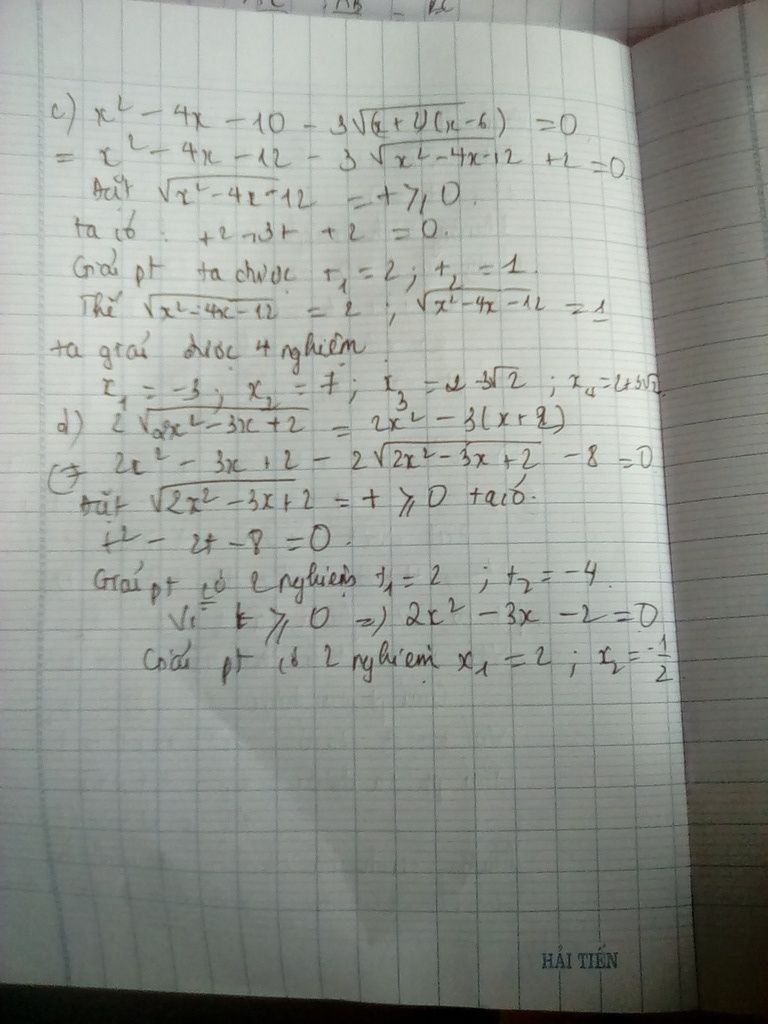 c) x² - 4x - 10 - 3√(x+2)(x-6) = 0
= x² - 4x - 12 - 3√x² - 4x - 12 + 2 = 0
Đặt √x² - 4x - 12 = t ⩾ 0.
ta có : t² - 3t + 2 = 0.
Giải pt ta được t₁ = 2 ; t₂ = 1.
Thế √x² - 4x - 12 = 2 ; √x² - 4x - 12 = 1
ta giải được 4 nghiệm
x₁ = -3 ; x₂ = 7 ; x₃ = 2 - 3√2 ; x₄ = 2 + 3√2
d) 2√2x² - 3x + 2 = 2x² - 3(x + 2)
2x² - 3x + 2 - 2√2x² - 3x + 2 - 8 = 0
Đặt √2x² - 3x + 2 = t ⩾ 0 ta có.
t² - 2t - 8 = 0.
Giải pt có 2 nghiệm t₁ = 2 ; t₂ = -4.
Vì t ⩾ 0 => 2x² - 3x - 2 = 0
Giải pt có 2 nghiệm x₁ = 2 ; x₂ = -1/2
HẢI TIẾN